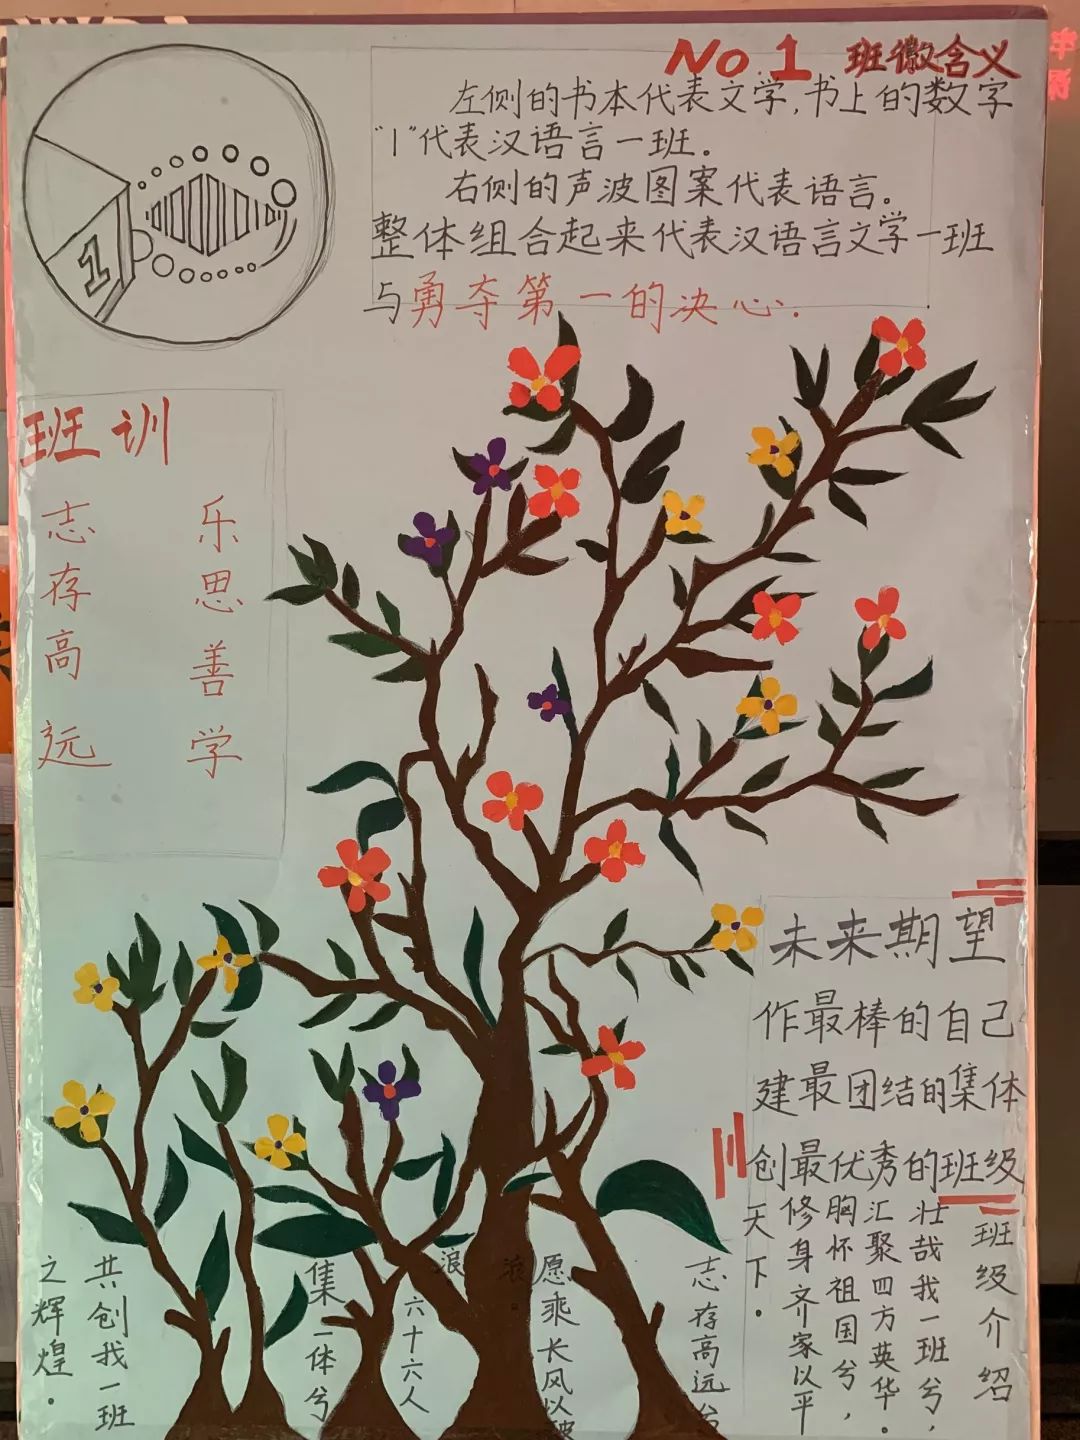 No 1 班徽含义
左侧的书本代表文学,书上的数字
"1"代表汉语言一班.
右侧的声波图案代表语言。
整体组合起来代表汉语言文学一班
与勇夺第一的决心.
1
班训
志存高远
乐思善学
未来期望
作最棒的自己
建最团结的集体
创最优秀的班级
班级介绍
壮哉我一班兮,
汇聚四方英华。
胸怀祖国兮,
修身齐家以平
天下.
志存高远兮
愿乘长风以破
浪
六十六人
集一体兮
共创我一班
之辉煌.